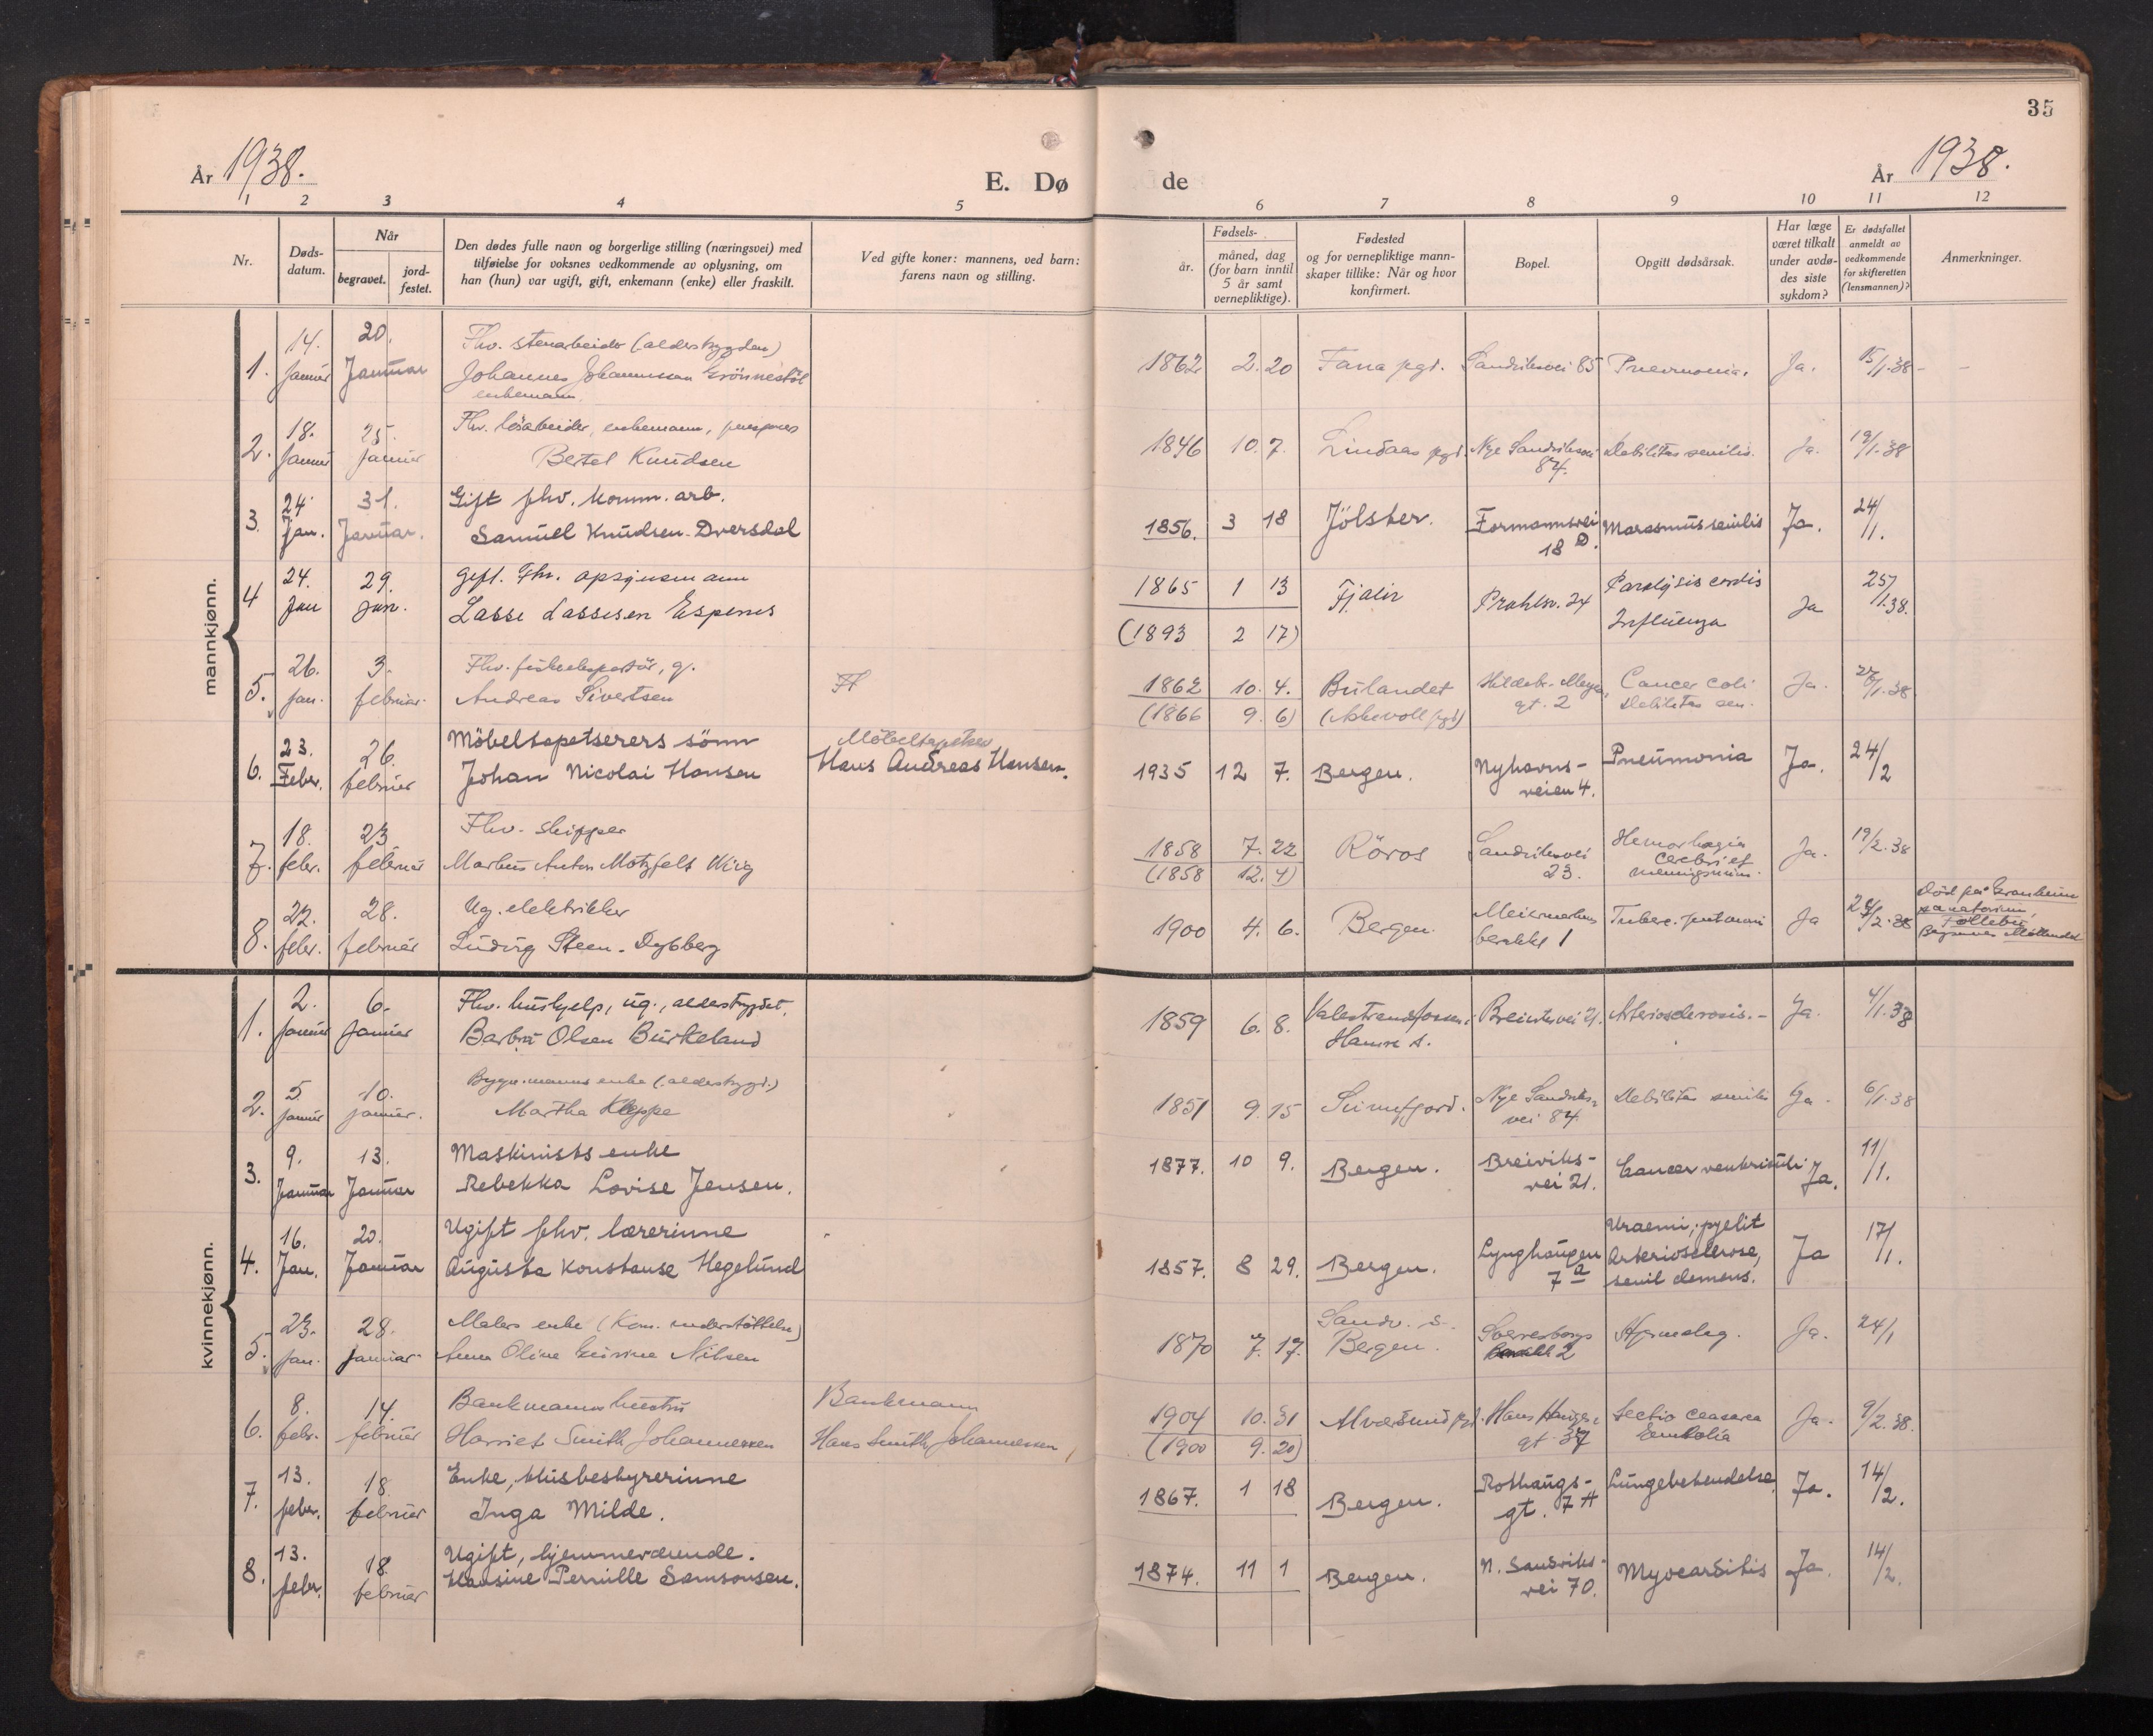 35
År 1938.
E. Dø de
År 1938.
1 2 3 4 5 6 7 8 9 10 11 12
Nr.
Døds-
datum.
Når
begravet.
jord-
festet.
Den dødes fulle navn og borgerlige stilling (næringsvei) med
tilføielse for voksnes vedkommende av oplysning, om
han (hun) var ugift, gift, enkemann (enke) eller fraskilt.
Ved gifte koner: mannens, ved barn:
farens navn og stilling.
Fødsels-
år.
måned, dag
(for barn inntil
5 år samt
vernepliktige).
Fødested
og for vernepliktige mann-
skaper tillike: Når og hvor
konfirmert.
Bopel.
Opgitt dødsårsak.
Har læge
været tilkalt
under avdø-
des siste
sykdom?
Er dødsfallet
anmeldt av
vedkommende
for skifteretten
(lensmannen)?
Anmerkninger.
mannkjønn.
1. 14. Januar 20. Januar
Fhv. stenarbeider (alderstrygden)
Johannes Johannessen Grönnestöl
enkemann.
1862 2. 20 Fana pgd. Sandviksvei 85 Pneumonia. Ja. 15/1.38 -
2. 18. Januar 25. Januar
Fhv. lösarbeider, enkemann,
Bertel Knudsen
1846 10. 7. Lindaas pgd. Nye Sandviksvei
84.
Debilitas senilis. Ja. 19/1.38
3. 24. Jan. 31. Januar.
Gift fhv. komm. arb.
Samuel Knudsen Dversdal
1856. 3 18 Jölster. Formannsvei
18 D.
Marasmus senilis Ja. 24/1.
4 24. Jan 29. jan.
Gift. Fhv. opsynsmann
Lasse Lassesen Espenes
1865 1 13
(1893 2 17)
Fjaler Prahlsv. 24
Paralysis cordis
Influenza
Ja 25/1.38.
5. 26. jan. 3. februar.
Fhv. fiskeeksportör, g.
Andreas Sivertsen
1862 10. 4. Bulandet
(1866 9. 6) (Askevoll pgd)
Hildebr. Meyers
gt. 2
Cancer coli
Debilitas sen.
Ja. /1.38
6. 23. Feber. 26. februar
Möbeltapetserers sönn
Johan Nicolai Hansen
Möbeltapetser
Hans Andreas Hansen.
1935 12 7. Bergen.
Nyhavns-
veien 4.
Pneumonia Ja. 24/2
7. 18. febr. 23 februar
Fhv. skipper
Markus Anton Motzfelt Wiig
1858 7. 22
(1858 12. 4)
Röros
Sandviksvei
23.
Hemorhagia
cerebri et
meningium.
Ja. 19/2.38
8. 22. febr. 28. februar
Ug. elektriker
Ludvig Steen-Dybberg
1900 4. 6. Bergen.
barakke 1
Tuberc. pulmon. Ja 24/2.38
Död på Granheim
sanatorium,
Follebu
Begraves Möllendal
kvinnekjønn.
1. 2. Januar 6. Januar
Fhv. hushjelp, ug., alderstrygdet.
Barbra Olsen Burkeland
1859 6. 8. Valestrandsfossen
Hamre s.
Breiviksvei 21. Arteriosclerosis. - Ja. 4/1.38
2. 5. Januar 10. Januar.
Bygn.manns enke (alderstrygd.)
Martha Kleppe
1851 9. 15 Sunnfjord.
Nye Sandviks-
vei 84.
Debilitas senilis Ja. 6/1.38
3. 9. Januar 13. Januar
Maskinists enke
Rebekka Lovise Jensen.
1877. 10 9. Bergen.
Breiviks-
vei 21.
Cancer ventriculi Ja. 11/1.
4. 16. Jan. 20. Januar
Ugift fhv. lærerinne
Augusta Konstanse Hegelund
1857. 8 29. Bergen.
Lynghaugen
7 a
Uraemi, pyelit
Arteriosclerose,
senil demens.
Ja 17/1.
5. 23. jan. 28. januar
Malers enke (Kom. understöttelse)
Anna Oline Nilsen
1870 7. 17. Sandv. s.
Bergen.
Sverresborg
2
Hjerneslag. Ja. 24/1
6. 8. febr. 14. februar
Bankmanns hustru
Harriet Smith Johannessen
Bankmann
Hans Smith Johannessen
1904 10. 31
(1900 9. 20)
Alversund pgd.
Hans Hauges
gt. 37
Sectio ceasarea
Embolia
Ja. 9/2.38.
7. 13. feber. 18. februar
Enke, husbestyrerinne
Inga Milde.
1867. 1 18 Bergen.
Rothaugs-
gt. 7 H
Lungebetendelse Ja. 14/2.
8. 13. febr. 18. februar
Ugift, hjemmeværende.
Hansine Pernille Samsonsen.
1874. 11 1 Bergen.
N. Sandviks-
vei 70.
Myocarditis Ja. 14/2.